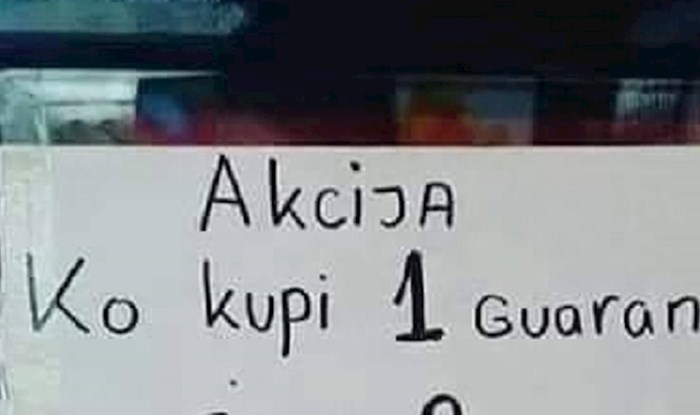 AkciJA
Ko kupi 1 Guaran